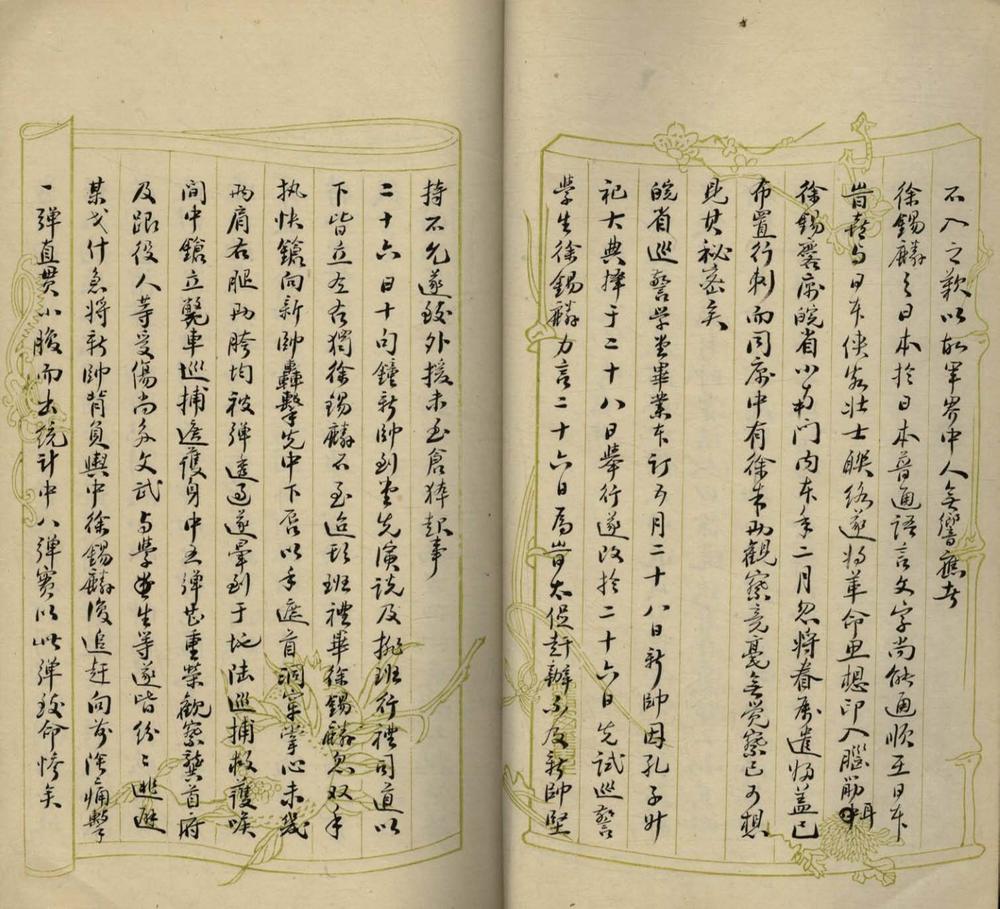 不入之歎以故軍界中人無響應者
徐錫麟之日本於日本普通語言文字尚能通順至日本
皆与日本俠客壯士聯絡遂将革命思想印入腦筋中
徐錫麐寓皖省小南門内本年二月忽将眷属遣归盖已
布置行刺而同寓中有徐朱两觀察竟毫無覚察已可想
見其秘密矣
皖省巡警学堂畢業本订五月二十八日新帥因孔子升
祀大典择于二十八日舉行遂改於二十六日先試巡警
學生徐錫麟力言二十六日為時太促赶辦不及新帥堅
持不允遂致外援未至倉猝起事
二十六日十句鐘新帥到堂先演説及排班行禮司道以
下皆立左右獨徐錫麟不至迨排班禮畢徐錫麟忽双手
执快鎗向新帥轟擊先中下唇以手遮首洞穿掌心未幾
两肩右腿两胯均被弹透過遂暈倒于地陸巡捕救護唉
間中鎗立斃車巡捕遮護身中五弹甚重榮觀察龔首府
及跟役人等受傷尚多文武与學生等遂皆纷〻逃避
某戈什急将新帥背負輿中徐錫麟復追赶向前淫痛擊
一弹直贯小腹而出統计中八弹實以此弹致命惨矣